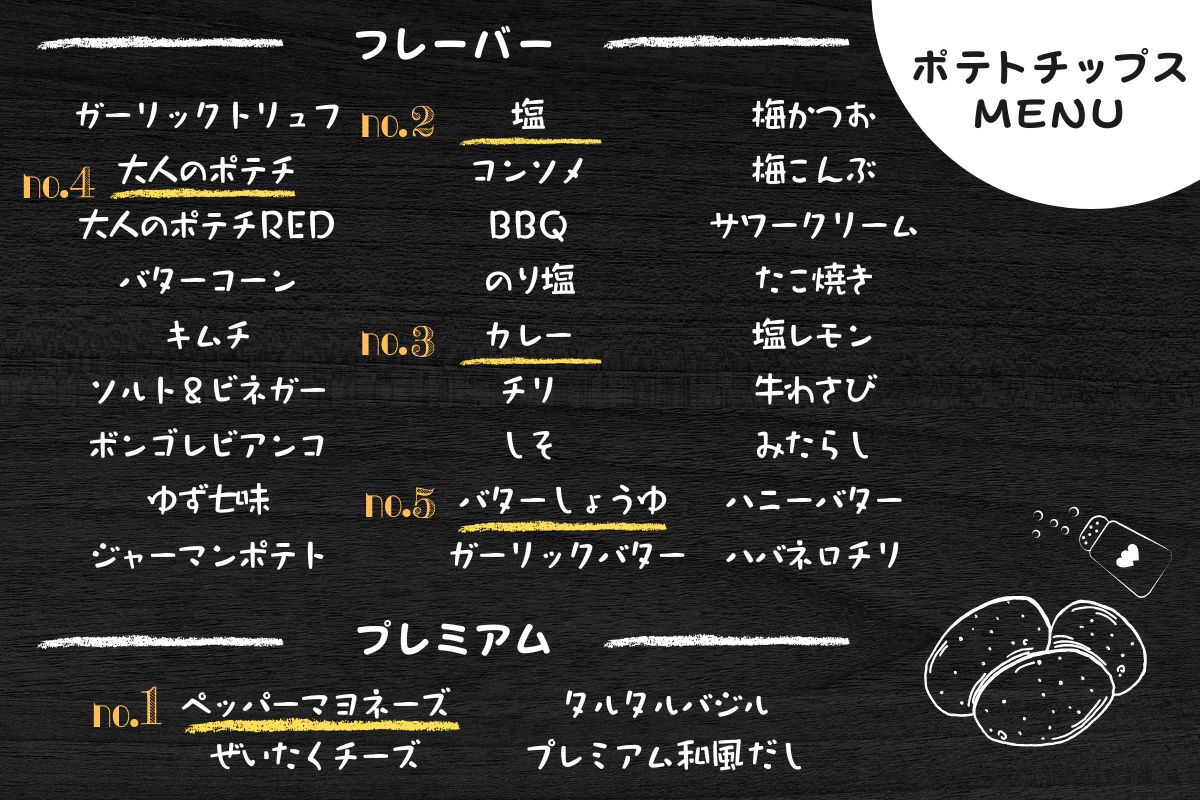 ポテトチップス
MENU
フレーバー
ガーリックトリュフ
no.4 大人のポテチ
大人のポテチRED
バターコーン
キムチ
ソルト&ビネガー
ボンゴレビアンコ
ゆず七味
ジャーマンポテト
no.2 塩
コンソメ
BBQ
のり塩
no.3 カレー
チリ
しそ
no.5 バターしょうゆ
ガーリックバター
梅かつお
梅こんぶ
サワークリーム
たこ焼き
塩レモン
牛わさび
みたらし
ハニーバター
ハバネロチリ
プレミアム
no.1 ペッパーマヨネーズ
ぜいたくチーズ
タルタルバジル
プレミアム和風だし